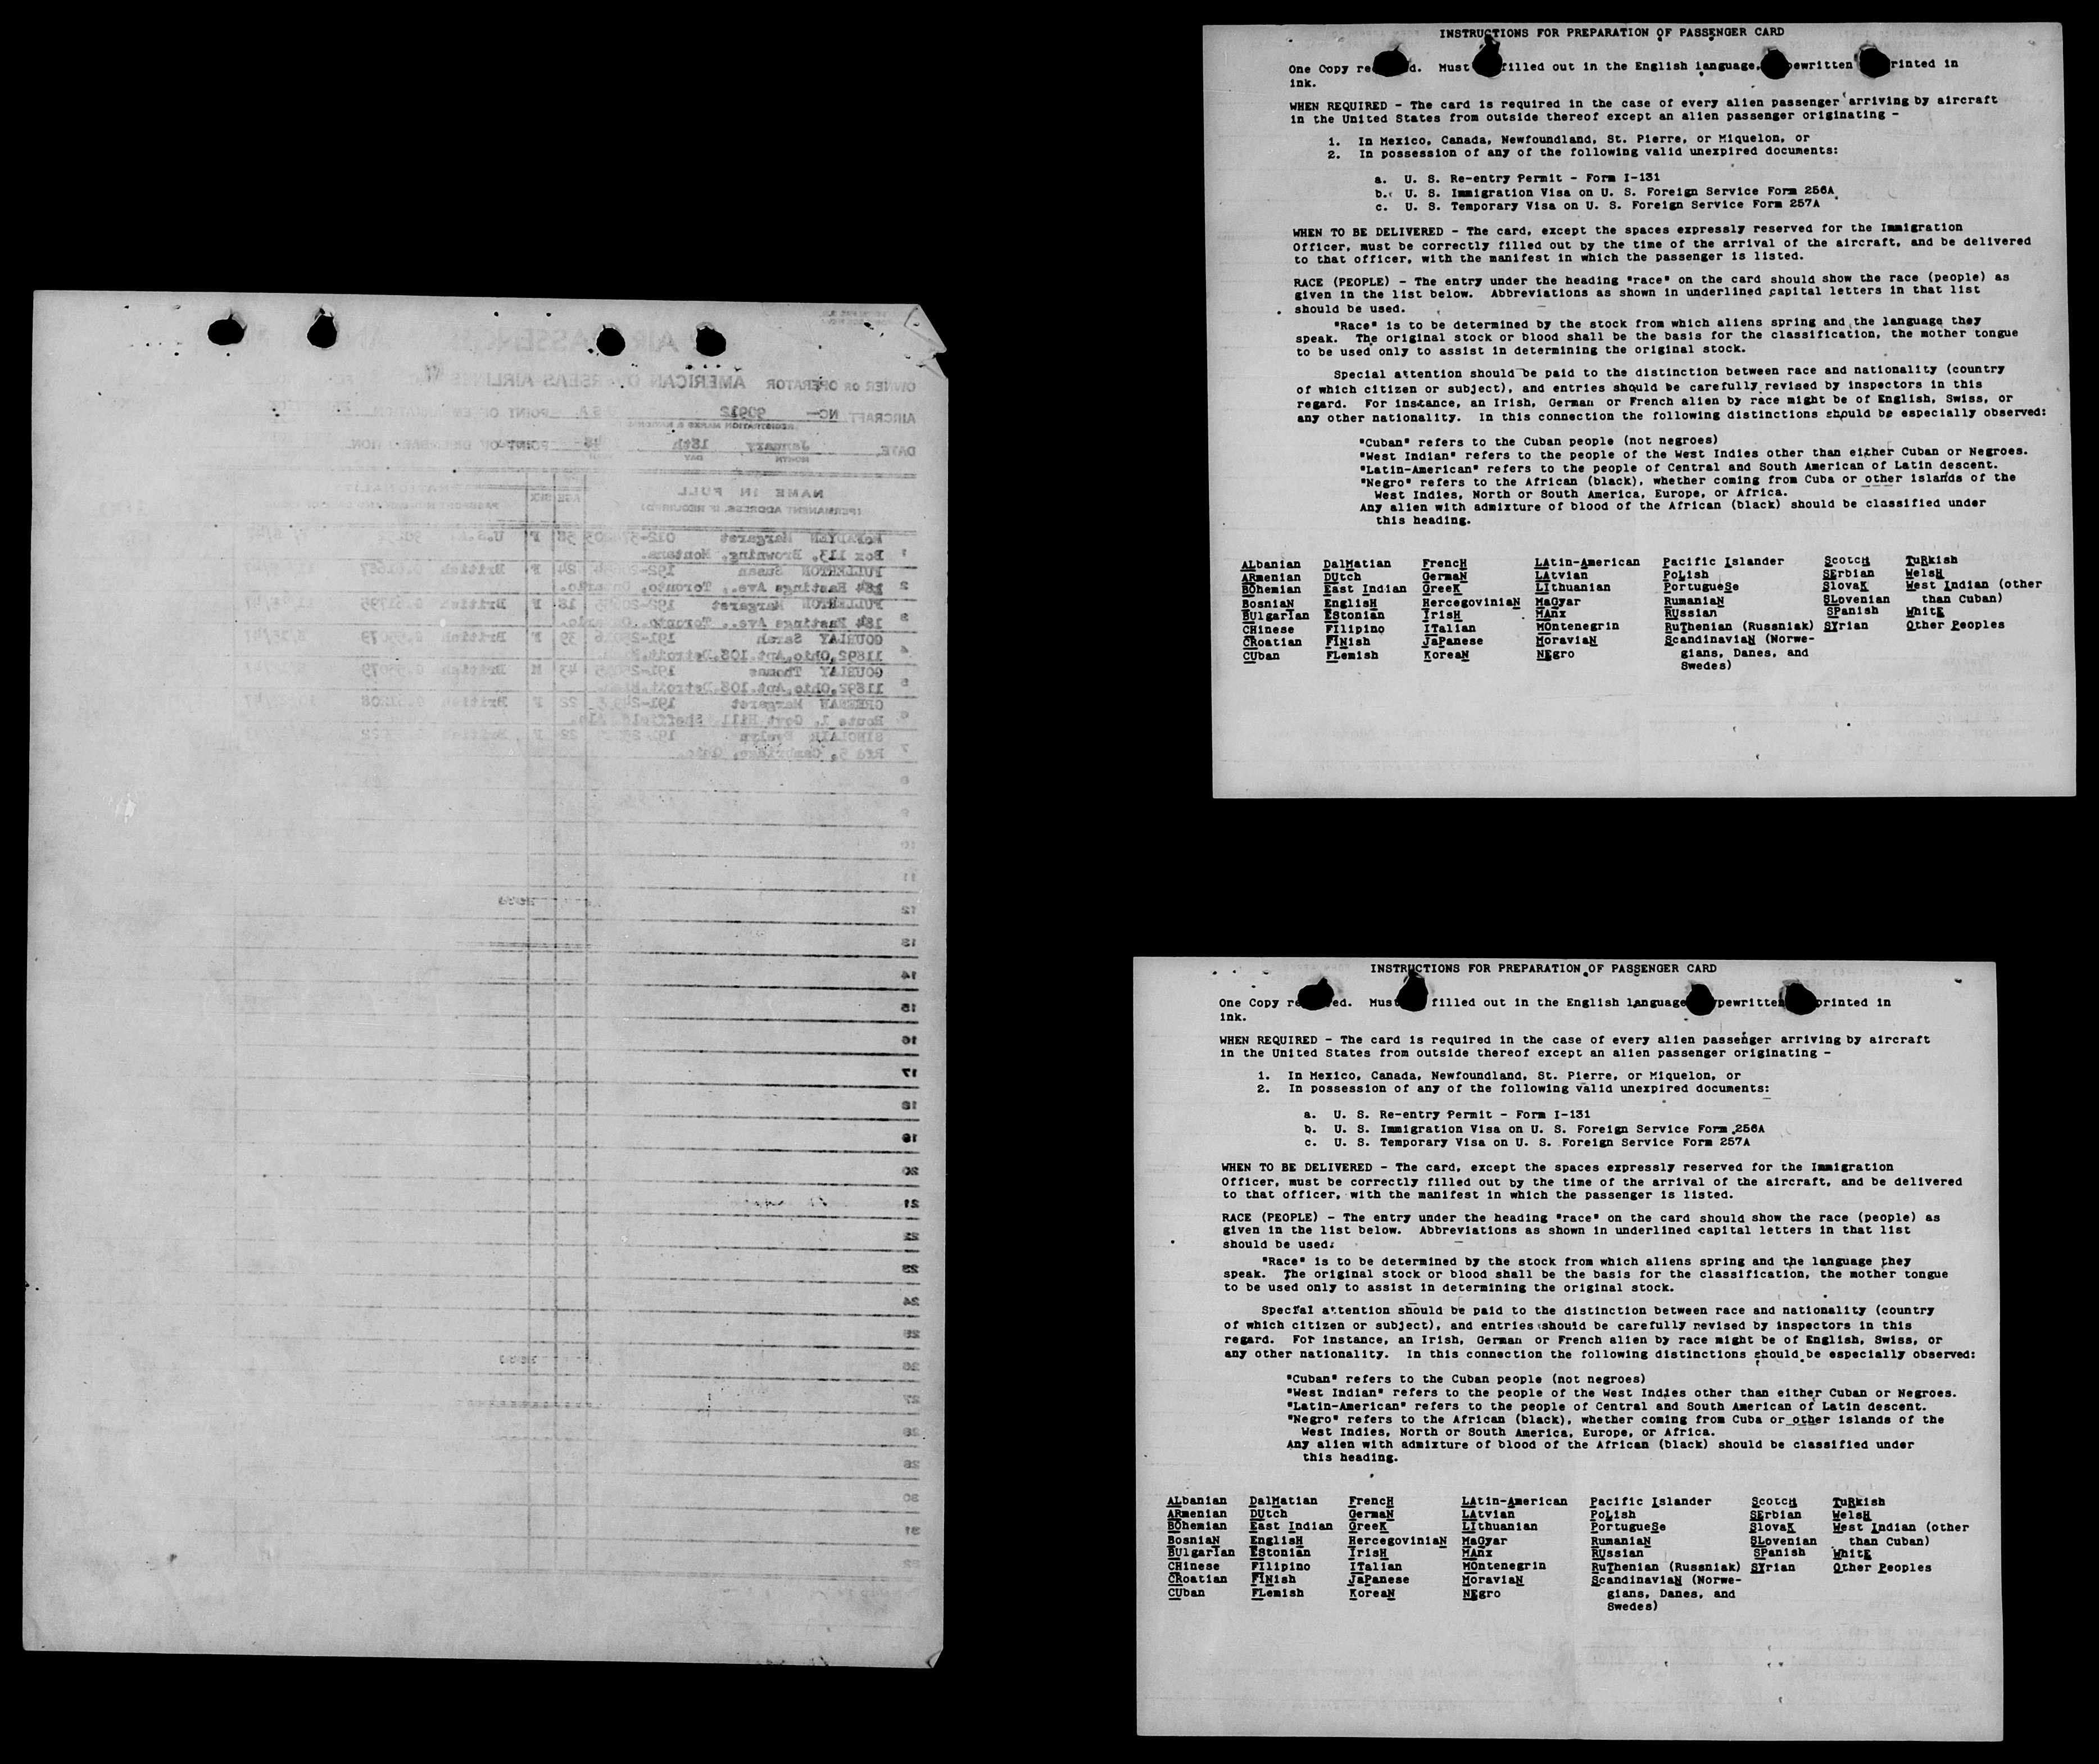 AIR PASSENGER
OWNER OR OPERATOR AMERICAN OVERSEAS AIRLINES
AIRCRAFT NC— 90912 POINT OF EMBARKATION
REGISTRATION MARKS & NATIONALITY
DATE, January 18th 48 POINT OF DEBARKATION
MONTH DAY
NAME IN FULL AGE SEX NATIONALITY
(PERMANENT ADDRESS, IF REQUIRED)
McFADYEN Margaret 58 F U.S.A.
1 Box 113, Browning, Montana.
FULLERTON Susan 24 F British
2 184 Hastings Ave., Toronto, Ontario.
FULLERTON Margaret 18 F British
3 184 Hastings Ave., Toronto, Ontario.
GOURLAY Sarah 39 F British
4 11892, Ohio, Apt. 108, Detroit, Mich.
GOURLAY Thomas 43 M British
5 11892, Ohio, Apt. 108, Detroit, Mich.
Margaret 22 F British
6 Route 1, Govt Hill, Sheffield, Ala.
SINCLAIR Evelyn 22 F British
7 Rfd 5, Cambridge, Ohio.
8
9
10
11
12
13
14
15
16
17
18
19
20
21
22
23
24
25
26
27
28
29
30
31
INSTRUCTIONS FOR PREPARATION OF PASSENGER CARD
One Copy re d. Must filled out in the English language, pewritten rinted in
ink.
WHEN REQUIRED - The card is required in the case of every alien passenger arriving by aircraft
in the United States from outside thereof except an alien passenger originating -
1. In Mexico, Canada, Newfoundland, St. Pierre, or Miquelon, or
2. In possession of any of the following valid unexpired documents:
a. U. S. Re-entry Permit - Form I-131
b. U. S. Immigration Visa on U. S. Foreign Service Form 256A
c. U. S. Temporary Visa on U. S. Foreign Service Form 257A
WHEN TO BE DELIVERED - The card, except the spaces expressly reserved for the Immigration
Officer, must be correctly filled out by the time of the arrival of the aircraft, and be delivered
to that officer, with the manifest in which the passenger is listed.
RACE (PEOPLE) - The entry under the heading "race" on the card should show the race (people) as
given in the list below. Abbreviations as shown in underlined capital letters in that list
should be used.
"Race" is to be determined by the stock from which aliens spring and the language they
speak. The original stock or blood shall be the basis for the classification, the mother tongue
to be used only to assist in determining the original stock.
Special attention should be paid to the distinction between race and nationality (country
of which citizen or subject), and entries should be carefully revised by inspectors in this
regard. For instance, an Irish, German or French alien by race might be of English, Swiss, or
any other nationality. In this connection the following distinctions should be especially observed:
"Cuban" refers to the Cuban people (not negroes)
"West Indian" refers to the people of the West Indies other than either Cuban or Negroes.
"Latin-American" refers to the people of Central and South American of Latin descent.
"Negro" refers to the African (black), whether coming from Cuba or other islands of the
West Indies, North or South America, Europe, or Africa.
Any alien with admixture of blood of the African (black) should be classified under
this heading.
ALbanian DalMatian FrencH LAtin-American Pacific Islander ScotcH TuRkish
ARmenian DUtch GermaN LAtvian PoLish SErbian WelsH
BOhemian East Indian GreeK LIthuanian PortugueSe SlovaK West Indian (other
BosniaN EnglisH HercegoviniaN MaGyar RumaniaN SLovenian than Cuban)
BUlgarIan EStonian IrisH MAnx RUssian SPanish WhitE
CHinese FIlipino ITalian MOntenegrin RuThenian (Russniak) SYrian Other Peoples
CRoatian FINish JaPanese MoraviaN ScandinaviaN (Norwe-
CUban FLemish KoreaN NEgro gians, Danes, and
Swedes)
INSTRUCTIONS FOR PREPARATION OF PASSENGER CARD
One Copy re ed. Must filled out in the English language pewritten printed in
ink.
WHEN REQUIRED - The card is required in the case of every alien passenger arriving by aircraft
in the United States from outside thereof except an alien passenger originating -
1. In Mexico, Canada, Newfoundland, St. Pierre, or Miquelon, or
2. In possession of any of the following valid unexpired documents:
a. U. S. Re-entry Permit - Form I-131
b. U. S. Immigration Visa on U. S. Foreign Service Form 256A
c. U. S. Temporary Visa on U. S. Foreign Service Form 257A
WHEN TO BE DELIVERED - The card, except the spaces expressly reserved for the Immigration
Officer, must be correctly filled out by the time of the arrival of the aircraft, and be delivered
to that officer, with the manifest in which the passenger is listed.
RACE (PEOPLE) - The entry under the heading "race" on the card should show the race (people) as
given in the list below. Abbreviations as shown in underlined capital letters in that list
should be used.
"Race" is to be determined by the stock from which aliens spring and the language they
speak. The original stock or blood shall be the basis for the classification, the mother tongue
to be used only to assist in determining the original stock.
Special attention should be paid to the distinction between race and nationality (country
of which citizen or subject), and entries should be carefully revised by inspectors in this
regard. For instance, an Irish, German or French alien by race might be of English, Swiss, or
any other nationality. In this connection the following distinctions should be especially observed:
"Cuban" refers to the Cuban people (not negroes)
"West Indian" refers to the people of the West Indies other than either Cuban or Negroes.
"Latin-American" refers to the people of Central and South American of Latin descent.
"Negro" refers to the African (black), whether coming from Cuba or other islands of the
West Indies, North or South America, Europe, or Africa.
Any alien with admixture of blood of the African (black) should be classified under
this heading.
ALbanian DalMatian FrencH LAtin-American Pacific Islander ScotcH TuRkish
ARmenian DUtch GermaN LAtvian PoLish SErbian WelsH
BOhemian East Indian GreeK LIthuanian PortugueSe SlovaK West Indian (other
BosniaN EnglisH HercegoviniaN MaGyar RumaniaN SLovenian than Cuban)
BUlgarIan EStonian IrisH MAnx RUssian SPanish WhitE
CHinese FIlipino ITalian MOntenegrin RuThenian (Russniak) SYrian Other Peoples
CRoatian FINish JaPanese MoraviaN ScandinaviaN (Norwe-
CUban FLemish KoreaN NEgro gians, Danes, and
Swedes)